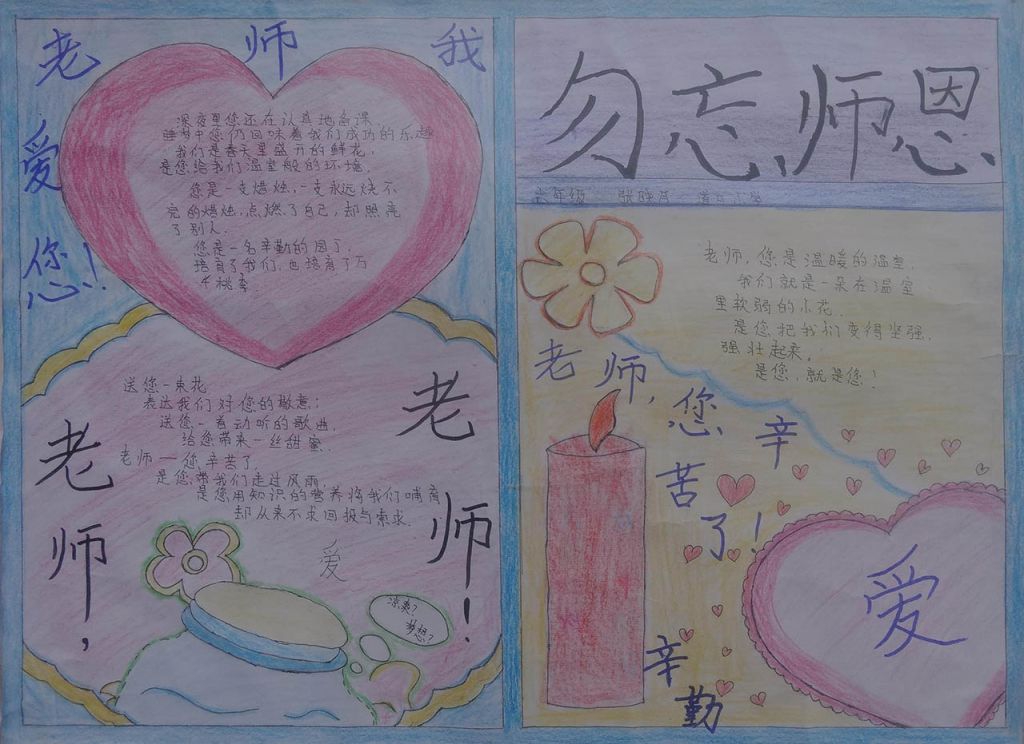 老师我爱您!
深夜里您还在认真地备课
睡梦中您仍回味着我们成功的乐趣
我们是春天里盛开的鲜花,
是您给我们温室般的环境,
您是一支蜡烛,一支永远烧不
完的蜡烛,点燃了自己,却照亮
了别人,
您是一名辛勤的园丁,
培育了我们,也培育了万
千桃李
送您一束花
表达我们对您的敬意;
送您一首动听的歌曲,
给您带来一丝甜蜜
老师——您辛苦了
是您带我们走过风雨,
是您用知识的营养将我们哺育
却从来不求回报与索求
老师,
老师!
爱
梦想?
勿忘师恩
六年级
小学
老师,您是温暖的温室,
我们就是一朵在温室
里软弱的小花
是您把我们变得坚强,
强壮起来,
是您,就是您!
老师,您辛苦了!
辛勤
爱